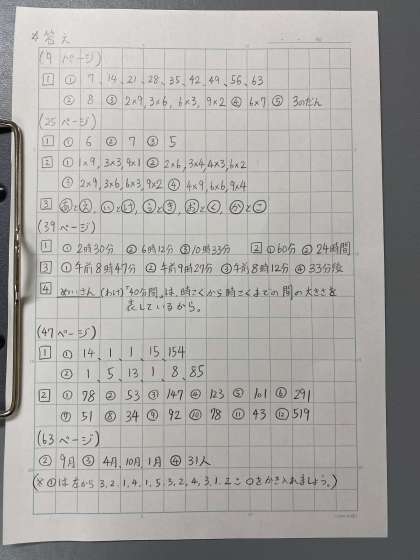 ☆答え
(9 ページ)
1 ① 7、14、21、28、35、42、49、56、63
② 8 ③ 2×9、3×6、6×3、9×2 ④ 6×7 ⑤ 3のだん
(25 ページ)
1 ① 6 ② 7 ③ 5
2 ① 1×9、3×3、9×1 ② 2×6、3×4、4×3、6×2
③ 2×9、3×6、6×3、9×2 ④ 4×9、6×6、9×4
3 あとえ、いとけ、うとき、おとく、かとこ
(39 ページ)
1 ① 2時30分 ② 6時12分 ③ 10時33分 2 ① 60分 ② 24時間
3 ① 午前8時47分 ② 午前9時27分 ③ 午前8時12分 ④ 33分後
4 めいさん (わけ)「40分間」は、時こくから時こくまでの間の大きさを
表しているから。
(47 ページ)
1 ① 14、1、1、15、154
② 1、5、13、1、8、85
2 ① 78 ② 53 ③ 147 ④ 123 ⑤ 101 ⑥ 291
⑦ 51 ⑧ 34 ⑨ 92 ⑩ 78 ⑪ 43 ⑫ 519
(63 ページ)
② 9月 ③ 4月、10月、1月 ④ 31人
(※①は左から 3、2、1、4、1、5、3、2、4、3、1、2こ〇をかき入れましょう。)